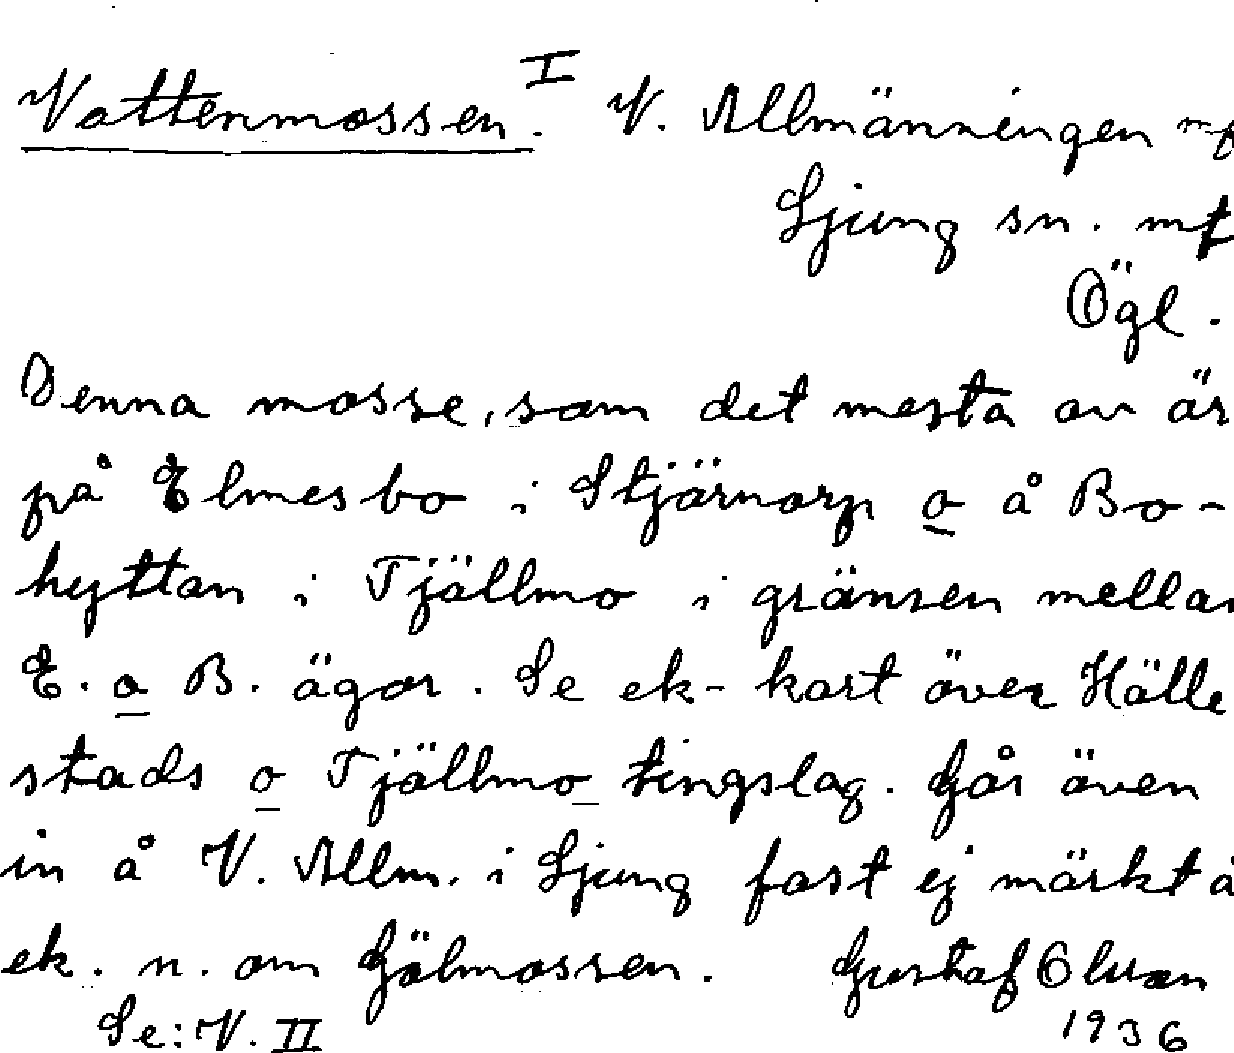 Vattenmossen. I V. Allmänningen mf
Ljung sn. mf
Ögl.
Denna mosse, som det mesta av är
på Elmesbo i Stjärnorp o å Bo-
hyttan i Tjällmo i gränsen mellan
E. o B. ägor. Se ek-kart över Hälle
stads o Tjällmo tingslag. Går även
in å V. Allm. i Ljung fast ej märkt å
ek. n. om Gölmossen. Gustaf Olsson
Se: V. II 1936